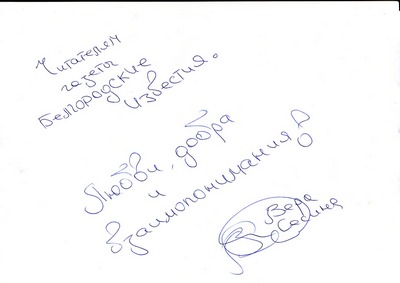 Читателям
газеты
Белгородские
Известия.
Любви, добра
и
взаимопонимания!
Вера